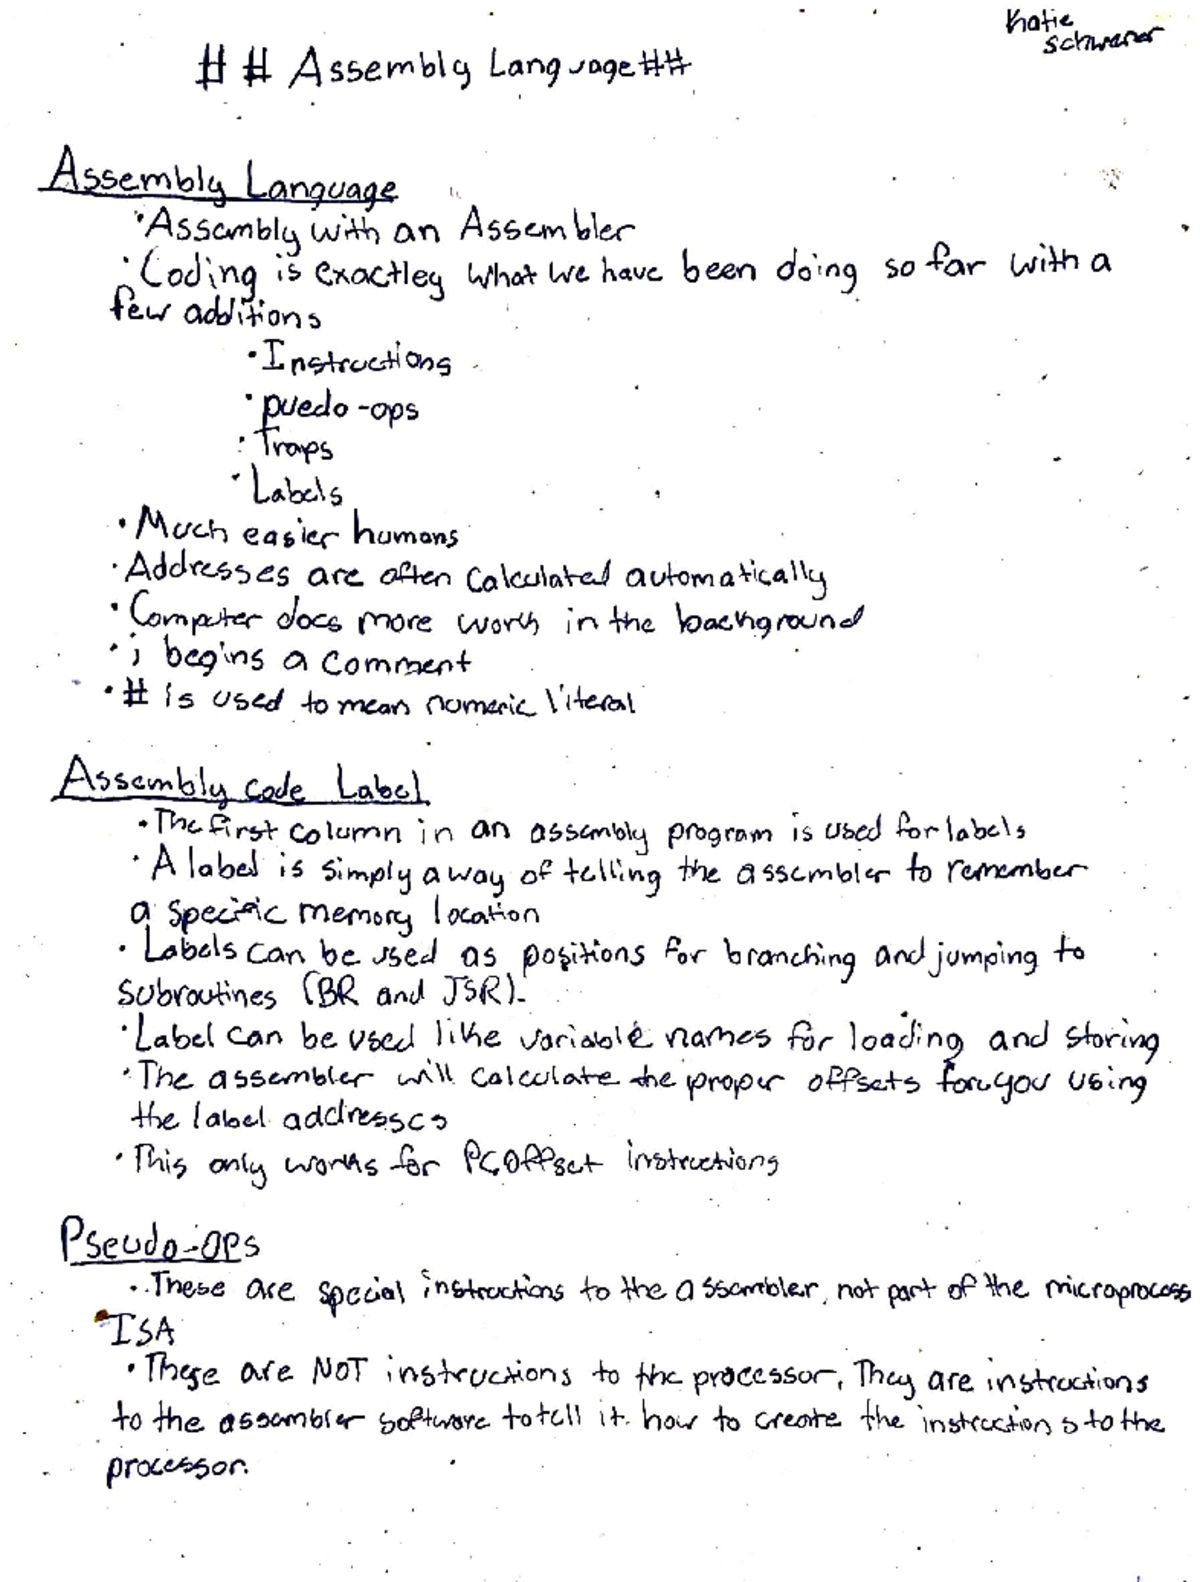 Katie
Schwaner
## Assembly Language##
Assembly Language
• Assembly with an Assembler
• Coding is exactley what we have been doing so far with a
few additions
• Instructions
• puedo-ops
• Traps
• Labels
• Much easier humans
• Addresses are often calculated automatically
• Computer does more work in the background
• ; begins a comment
• # is used to mean numeric literal
Assembly code Label
• The first column in an assembly program is used for labels
• A label is simply a way of telling the assembler to remember
a specific memory location
• Labels can be used as positions for branching and jumping to
subroutines (BR and JSR).
• Label can be used like variable names for loading and storing
• The assembler will calculate the proper offsets for you using
the label addresses
• This only works for PCOffset instructions
Pseudo-ops
• These are special instructions to the assembler, not part of the microprocess
ISA
• These are NOT instructions to the processor, They are instructions
to the assembler software to tell it how to create the instructions to the
processor.